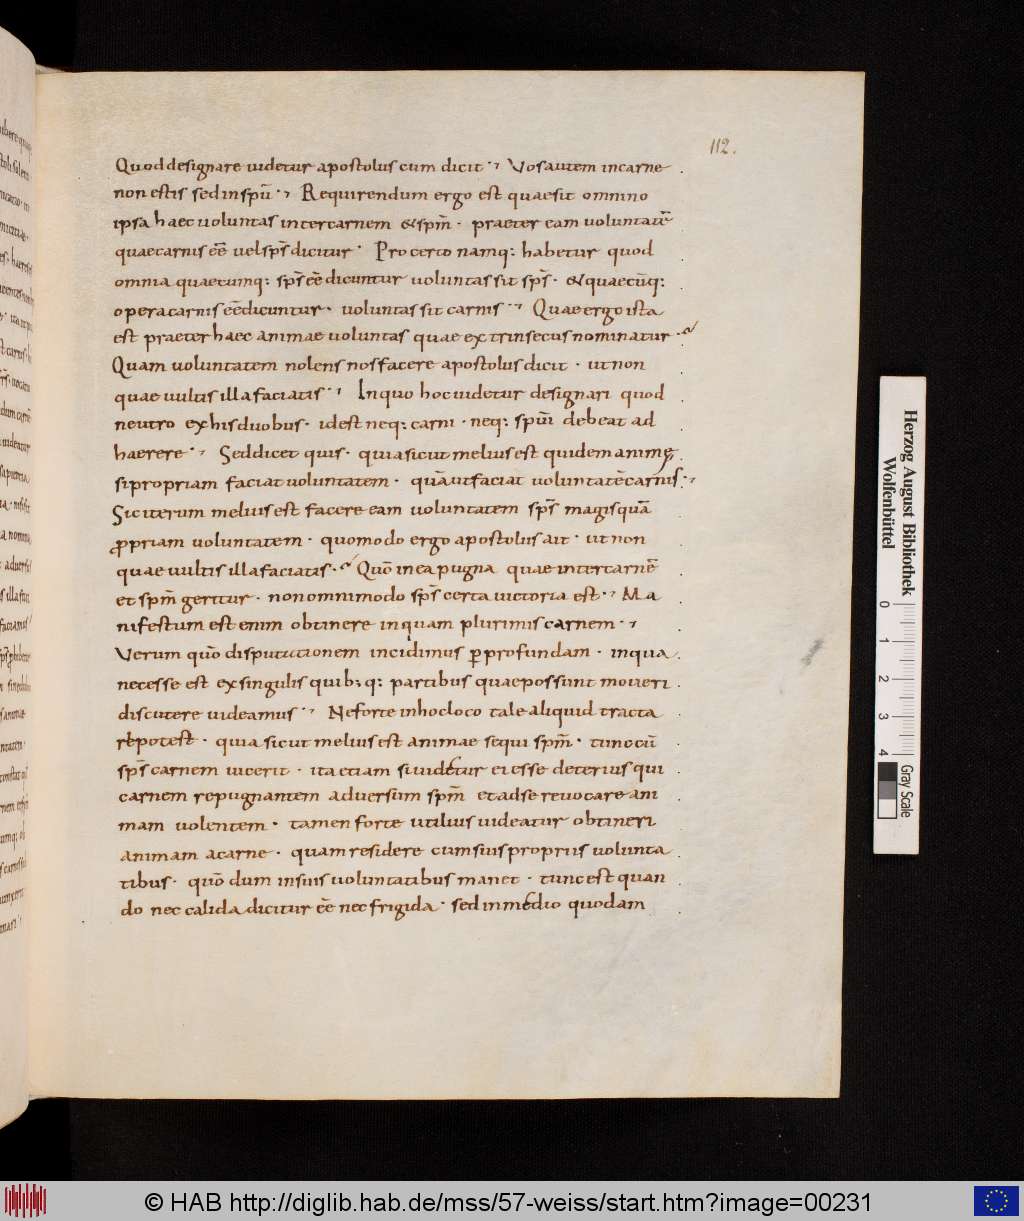 112.
Quod designare uidetur apostolus cum dicit·, Vos autem in carne
non estis sed in spū·, Requirendum ergo est quaesit omnino
ipsa haec uoluntas inter carnem &spm̄· praeter eam uoluntatē
quae carnis eē uel sps̄ dicitur· Pro certo namq: habetur quod
omnia quaecumq: sps̄ eē dicuntur uoluntas sit sps̄· & quaecūq:
opera carnis eē dicuntur· uoluntas sit carnis·, Quae ergo ista
est praeter haec animae uoluntas quae extrinsecus nominatur·
Quam uoluntatem nolens nos facere apostolus dicit· ut non
quae uultis illa faciatis·, In quo hoc uidetur designari quod
neutro ex his duobus· id est neq: carni· neq: spūi debeat ad
haerere·, Sed dicet quis· quia sicut melius est quidem animę
si propriam faciat uoluntatem· quā ut faciat uoluntatē carnis·,
Sic iterum melius est facere eam uoluntatem sps̄ magis quā
ꝓpriam uoluntatem· quomodo ergo apostolus ait· ut non
quae uultis illa faciatis· Quō in ea pugna quae inter carnē
et spm̄ geritur· non omnimodo sps̄ certa uictoria est·, Ma
nifestum est enim obtinere in quam plurimis carnem·,
Verum quō disputationem incidimus ꝑprofundam· in qua
necesse est ex singulis quib; q: partibus quae possunt moueri
discutere uideamus·, Ne forte in hoc loco tale aliquid tracta
ri potest· quia sicut melius est animae sequi spm̄· tunc cū
sps̄ carnem uicerit· ita etiam si uidetur ei esse deterius qui
carnem repugnantem aduersum spm̄ et ad se reuocare ani
mam uolentem· tamen forte utilius uideatur obtineri
animam a carne· quam residere cum suis propriis uolunta
tibus· quō dum in suis uoluntatibus manet· tunc est quan
do nec calida dicitur eē nec frigida· sed in medio quodam
Herzog August Bibliothek
Wolfenbüttel
0 1 2 3 4
Gray Scale
© HAB http://diglib.hab.de/mss/57-weiss/start.htm?image=00231